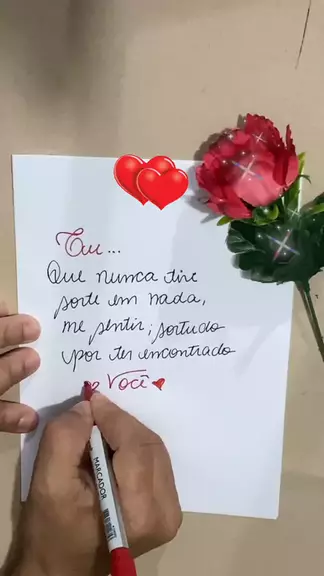 Eu...
Que nunca tive
sorte em nada,
me sentir; sortudo
por ter encontrado
Você
MARCADOR